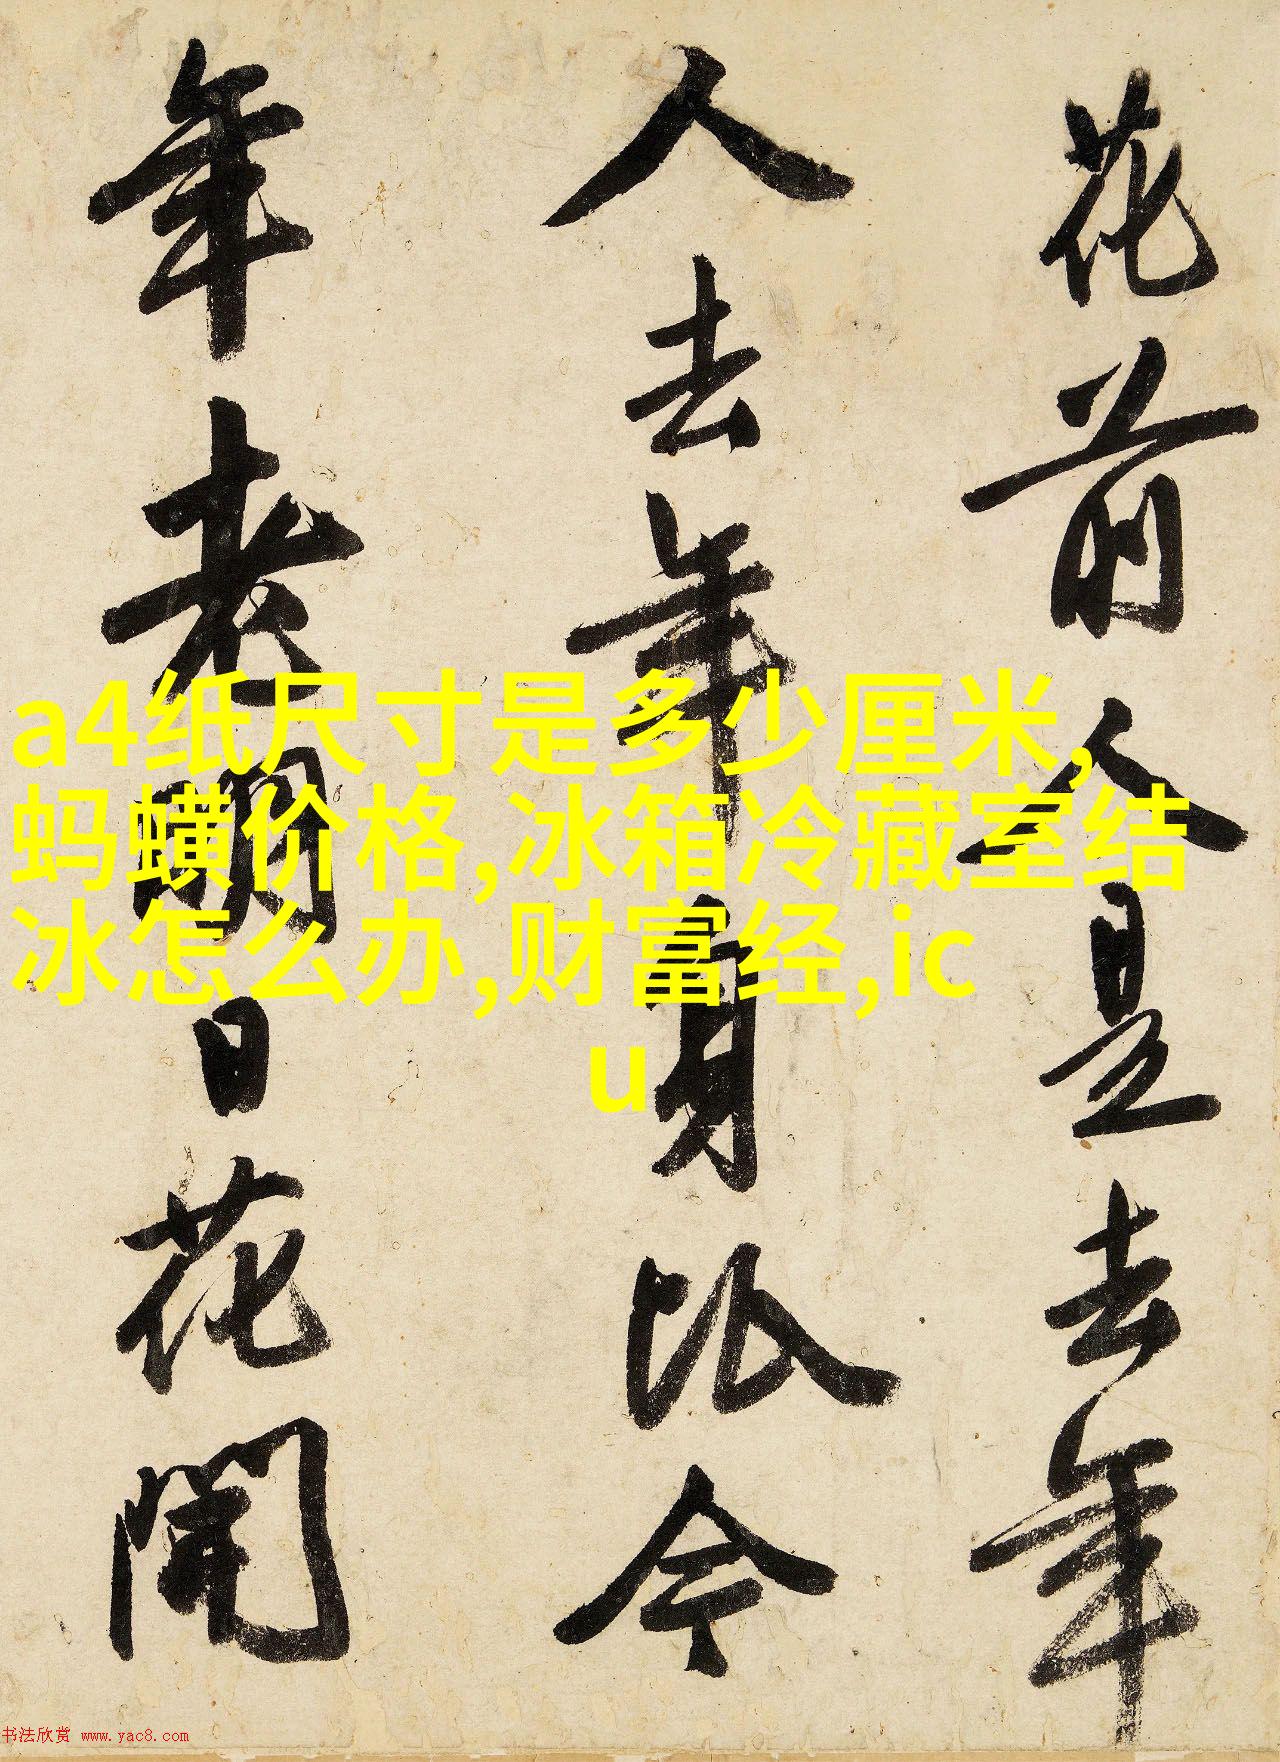 花前人是去年
人去年身比今
年老明日花開
a4纸尺寸是多少厘米,
蚂蟥价格,冰箱冷藏室结
冰怎么办,财富经,ic
u
书法欣赏 www.yac8.com